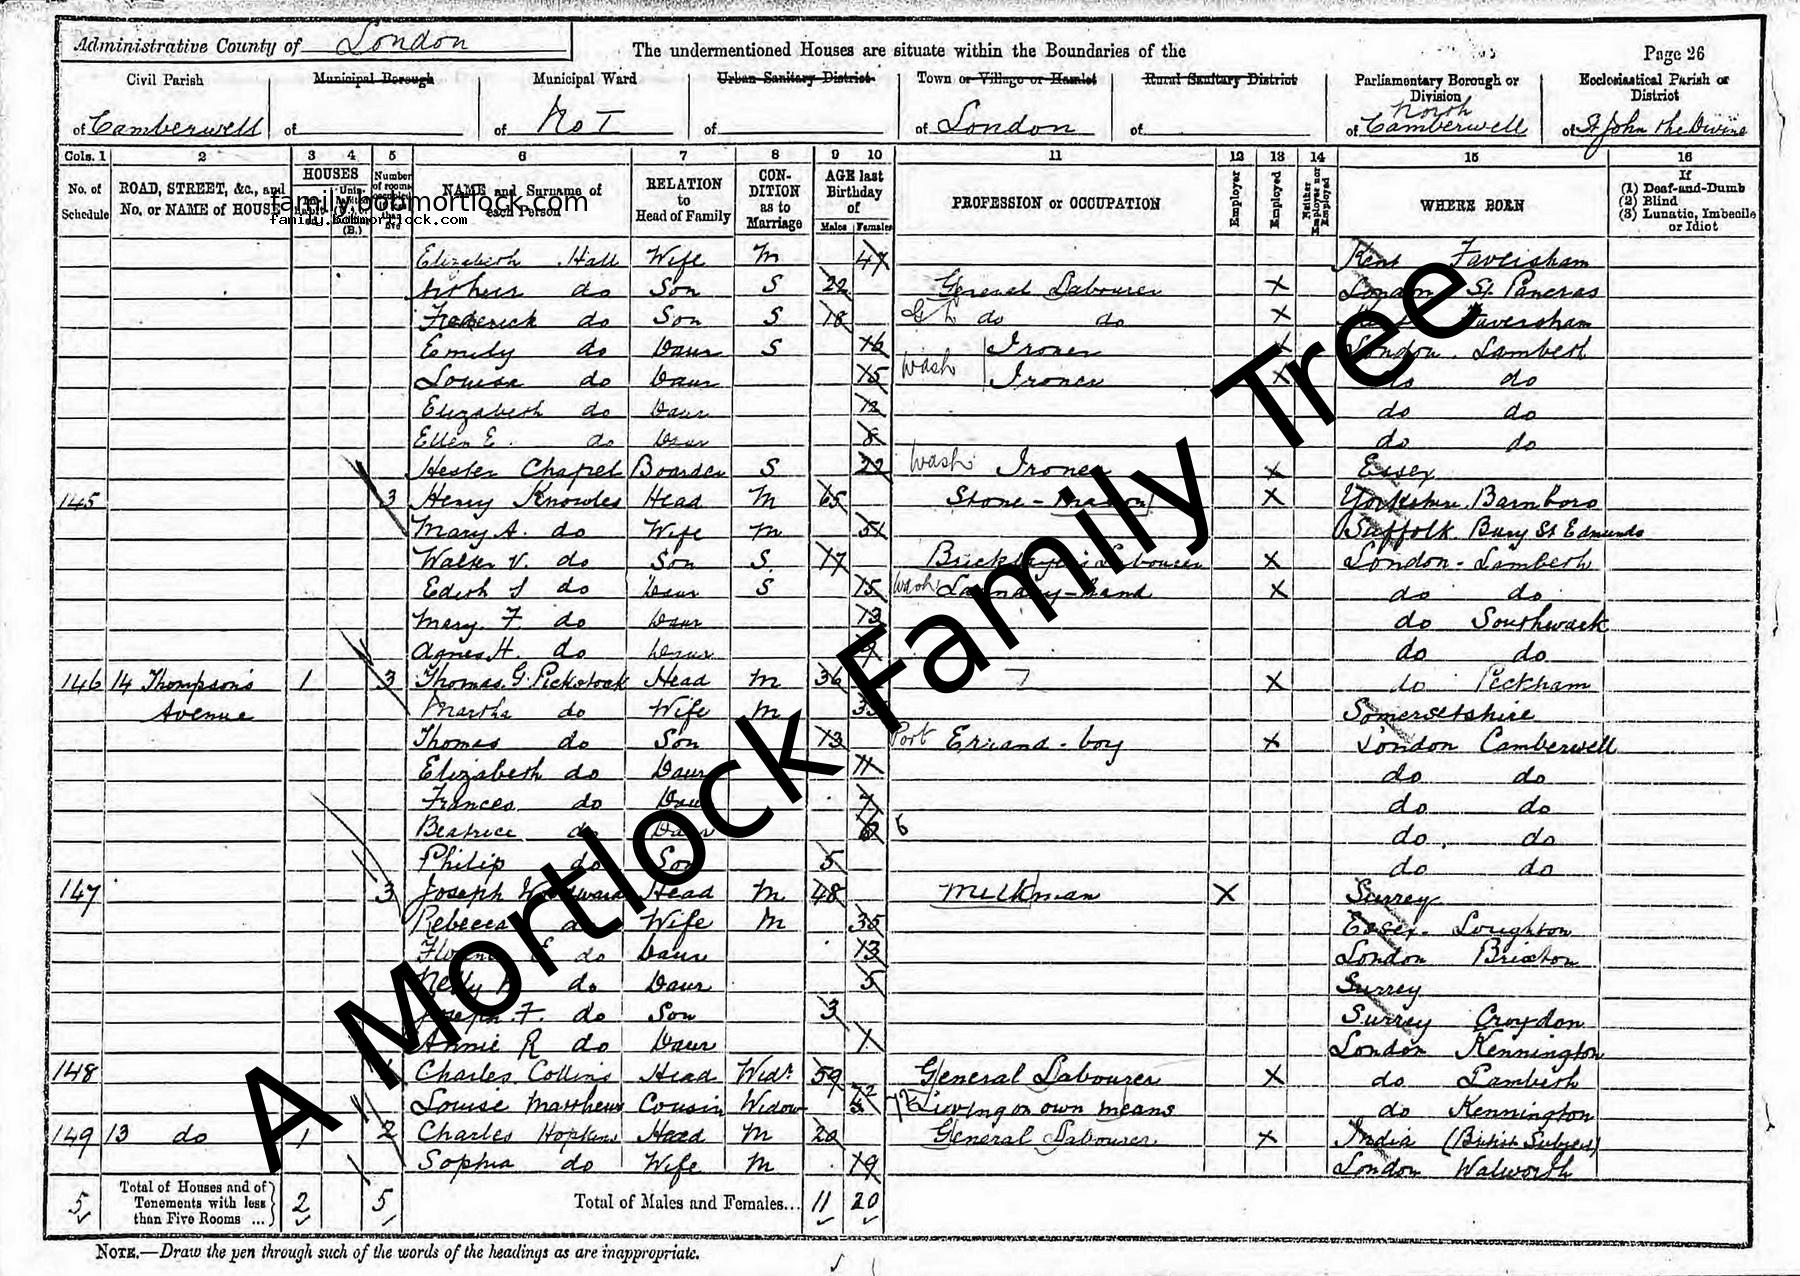 Administrative County of London
The undermentioned Houses are situate within the Boundaries of the
Page 26
Civil Parish
Municipal Borough
Municipal Ward
Urban Sanitary District
Town or Village or Hamlet
Rural Sanitary District
Parliamentary Borough or Division
Ecclesiastical Parish or District
of Camberwell
of
of No I
of
of London
of
of North Camberwell
of St John the Divine
Cols. 1 2 3 4 5 6 7 8 9 10 11 12 13 14 15 16
No. of Schedule
ROAD, STREET, &c., and No. or NAME of HOUSE
HOUSES
(B.)
Number of rooms
NAME and Surname of each Person
RELATION to Head of Family
CONDITION as to Marriage
AGE last Birthday of
Males Females
PROFESSION or OCCUPATION
Employer
Employed
Neither Employer nor Employed
WHERE BORN
If (1) Deaf-and-Dumb (2) Blind (3) Lunatic, Imbecile or Idiot
family.bobmortlock.com
family.bobmortlock.com
Elizabeth Hall Wife M 47 Kent Faversham
Arthur do Son S 22 General Labourer X London St. Pancras
Frederick do Son S 18 G L do do X Faversham
Emily do Daur S 16 Ironer X London Lambeth
Louisa do Daur 15 Wash Ironer X do do
Elizabeth do Daur 12 do do
Ellen E. do Daur 8 do do
Hester Chapel Boarder S 22 Wash Ironer X Essex
145 3 Henry Knowles Head M 65 Stone-Mason X Yorkshire Barnboro
Mary A. do Wife M 51 Suffolk Bury St Edmunds
Walter V. do Son S. 17 Bricklayer's Labourer X London - Lambeth
Edith S do Daur S 15 Wash Laundry-hand X do do
Mary. F. do Daur 13 do Southwark
Agnes H. do Daur 9 do do
146 14 Thompson's 1 3 Thomas. G. Pickstock Head M 36 X do Peckham
Avenue Martha do Wife M Somersetshire
Thomas do Son 13 Port Errand-boy X London Camberwell
Elizabeth do Daur 11 do do
Frances do Daur 7 do do
Beatrice do Daur 6 6 do do
Philip do Son 5 do do
147 3 Joseph Woodward Head M 48 Milkman X Surrey
Rebecca do Wife M 35 Essex. Loughton
Florence E do Daur 13 London Brixton
Nelly do Daur 5 Surrey
Joseph. F. do Son 3 Surrey Croydon
Annie R do Daur 1 London Kennington
148 Charles Collins Head Widr. 59 General Labourer X do Lambeth
Louise Matthews Cousin Widow 72 Living on own means do Kennington
149 13 do 1 2 Charles Hopkins Head M 20 General Labourer X India (British Subject)
Sophia do Wife M 19 London Walworth
5 Total of Houses and of Tenements with less than Five Rooms ... 2 5 Total of Males and Females... 11 20
NOTE.—Draw the pen through such of the words of the headings as are inappropriate.
A Mortlock Family Tree